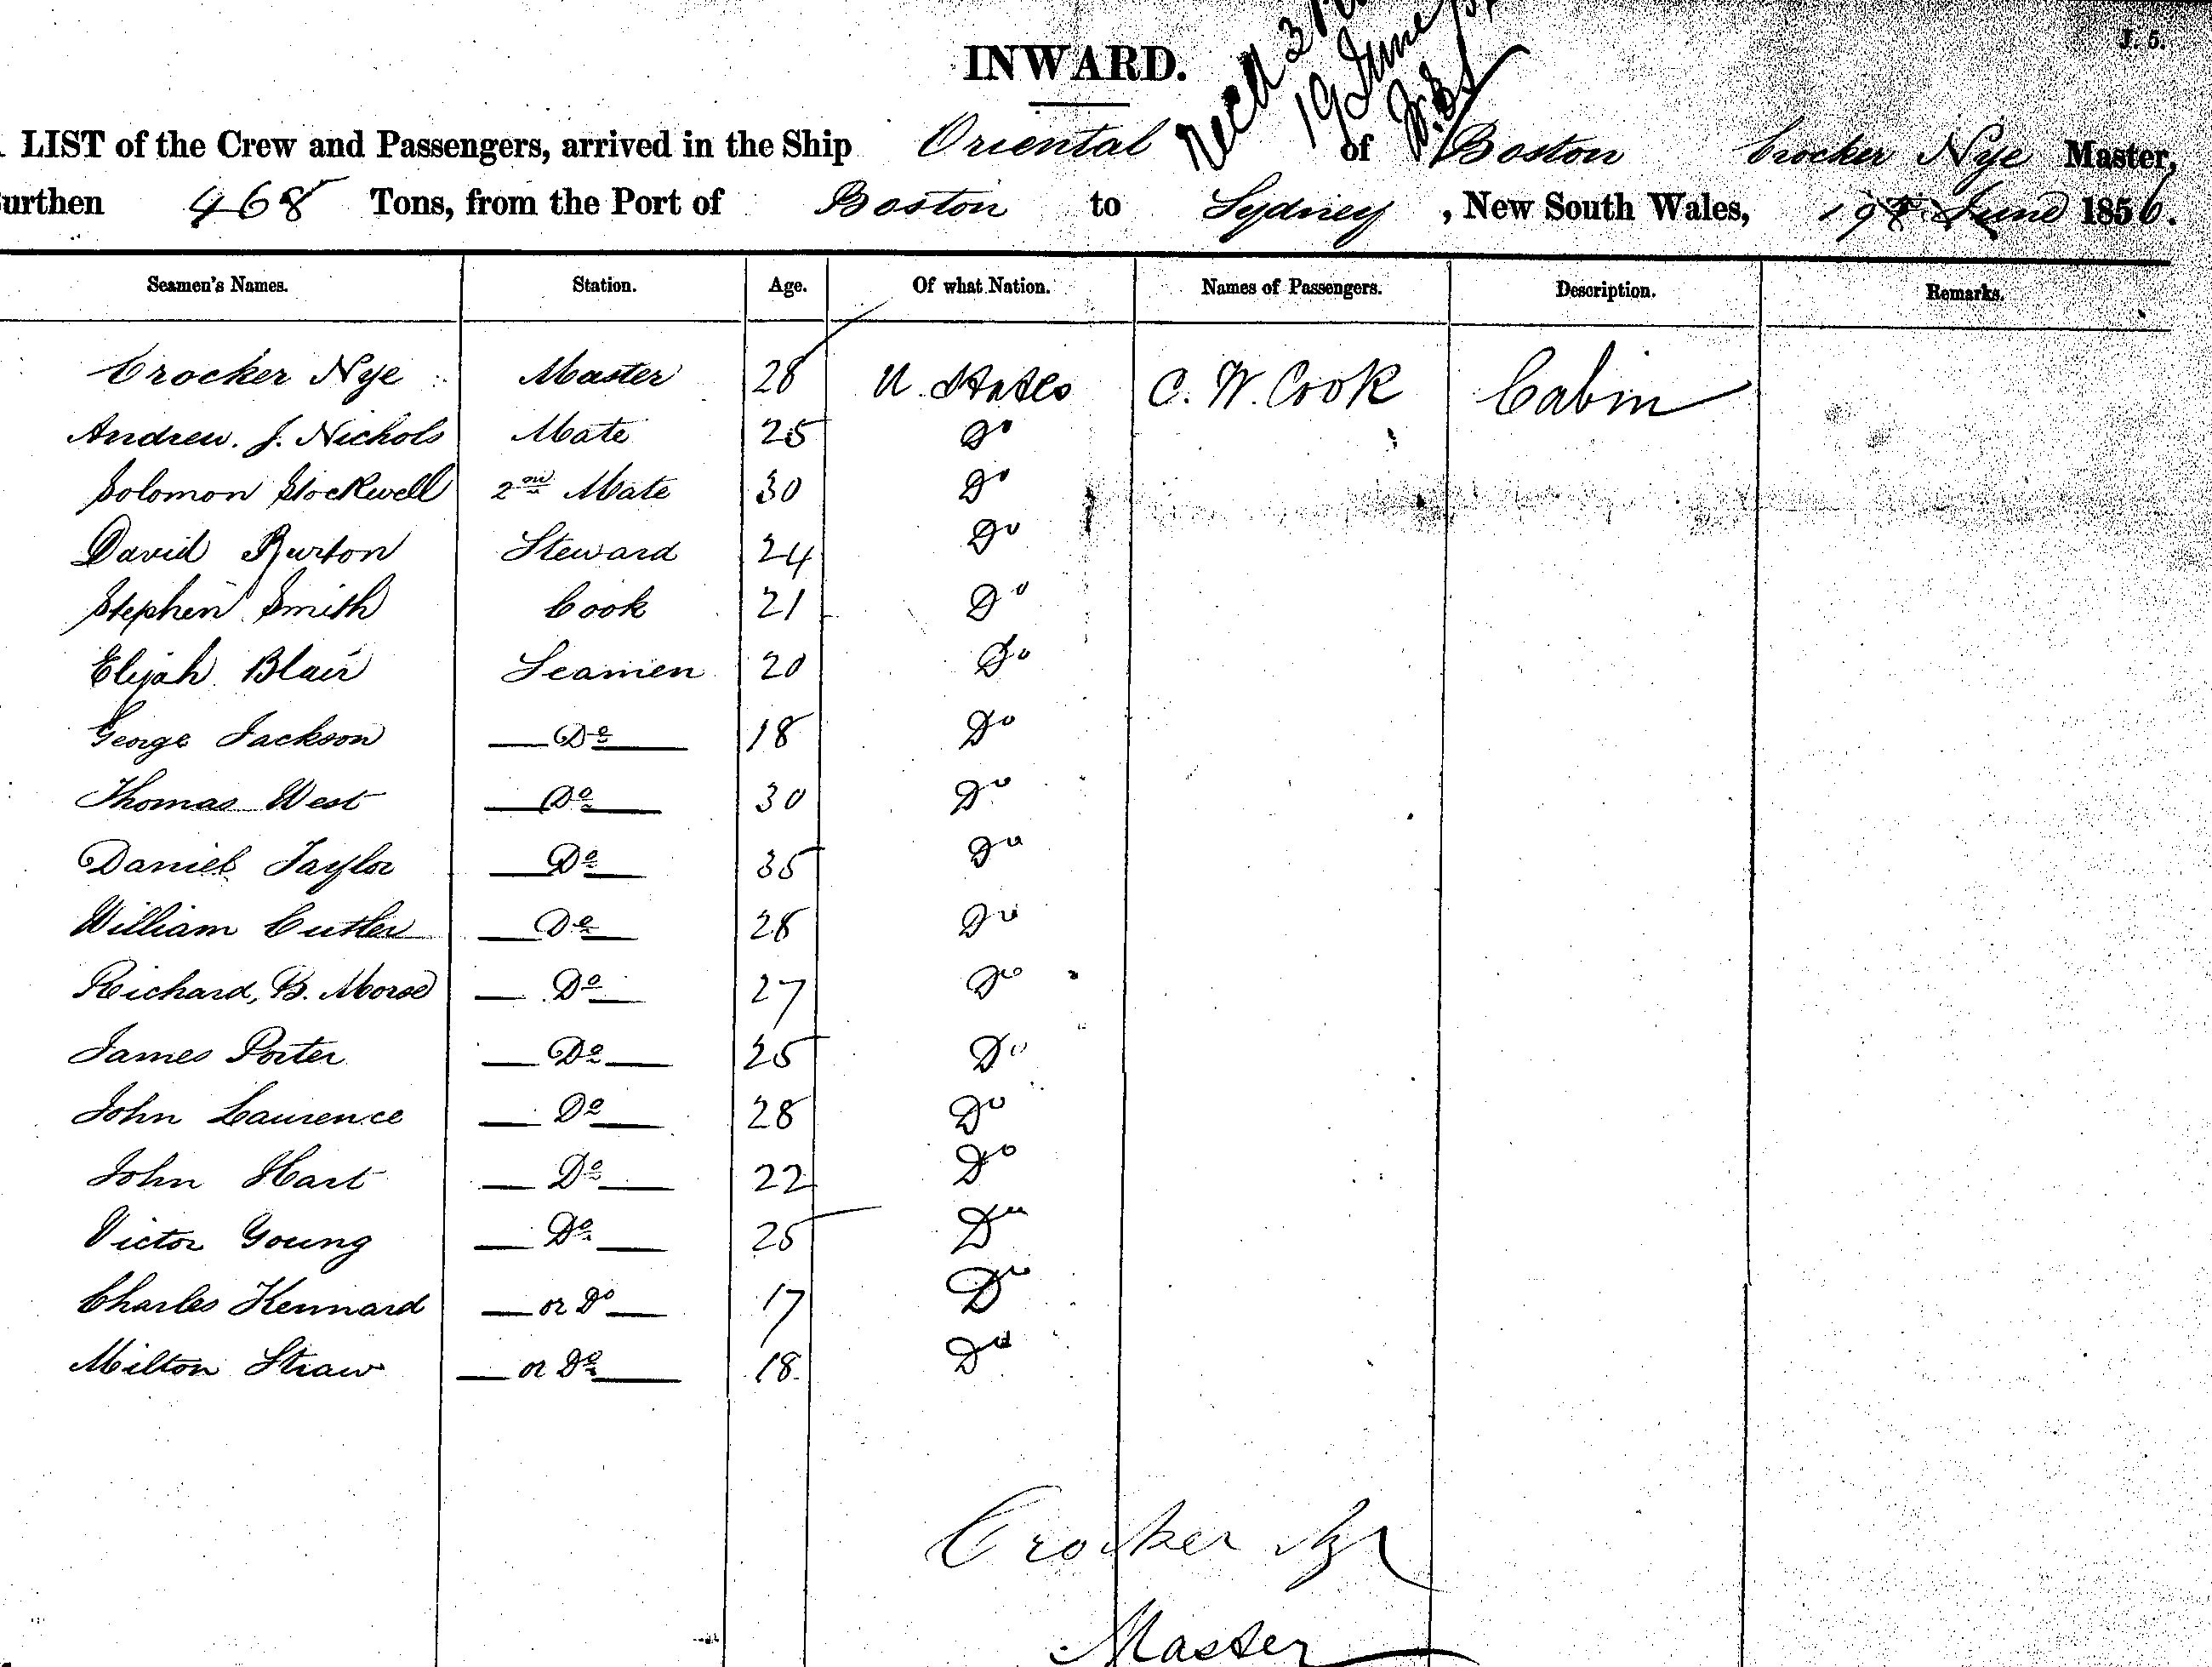 J. 5.
INWARD.
Recd
19 June
LIST of the Crew and Passengers, arrived in the Ship Oriental of Boston Crocker Nye Master,
urthen 468 Tons, from the Port of Boston to Sydney, New South Wales, 19th June 1856.
Seamen's Names. Station. Age. Of what Nation. Names of Passengers. Description. Remarks.
Crocker Nye Master 28 U. States C. W. Cook Cabin
Andrew. J. Nichols Mate 25 Do
Solomon Stockwell 2nd Mate 30 Do
David Burton Steward 24 Do
Stephen Smith Cook 21 Do
Elijah Blair Seamen 20 Do
George Jackson Do 18 Do
Thomas West Do 30 Do
Daniel Taylor Do 35 Do
William Cutler Do 28 Do
Richard, B. Morse Do 27 Do
James Porter Do 25 Do
John Laurence Do 28 Do
John Hart Do 22 Do
Victor Young Do 25 Do
Charles Kennard or Do 17 Do
Milton Straw or Do 18 Do
Crocker Nye
Master